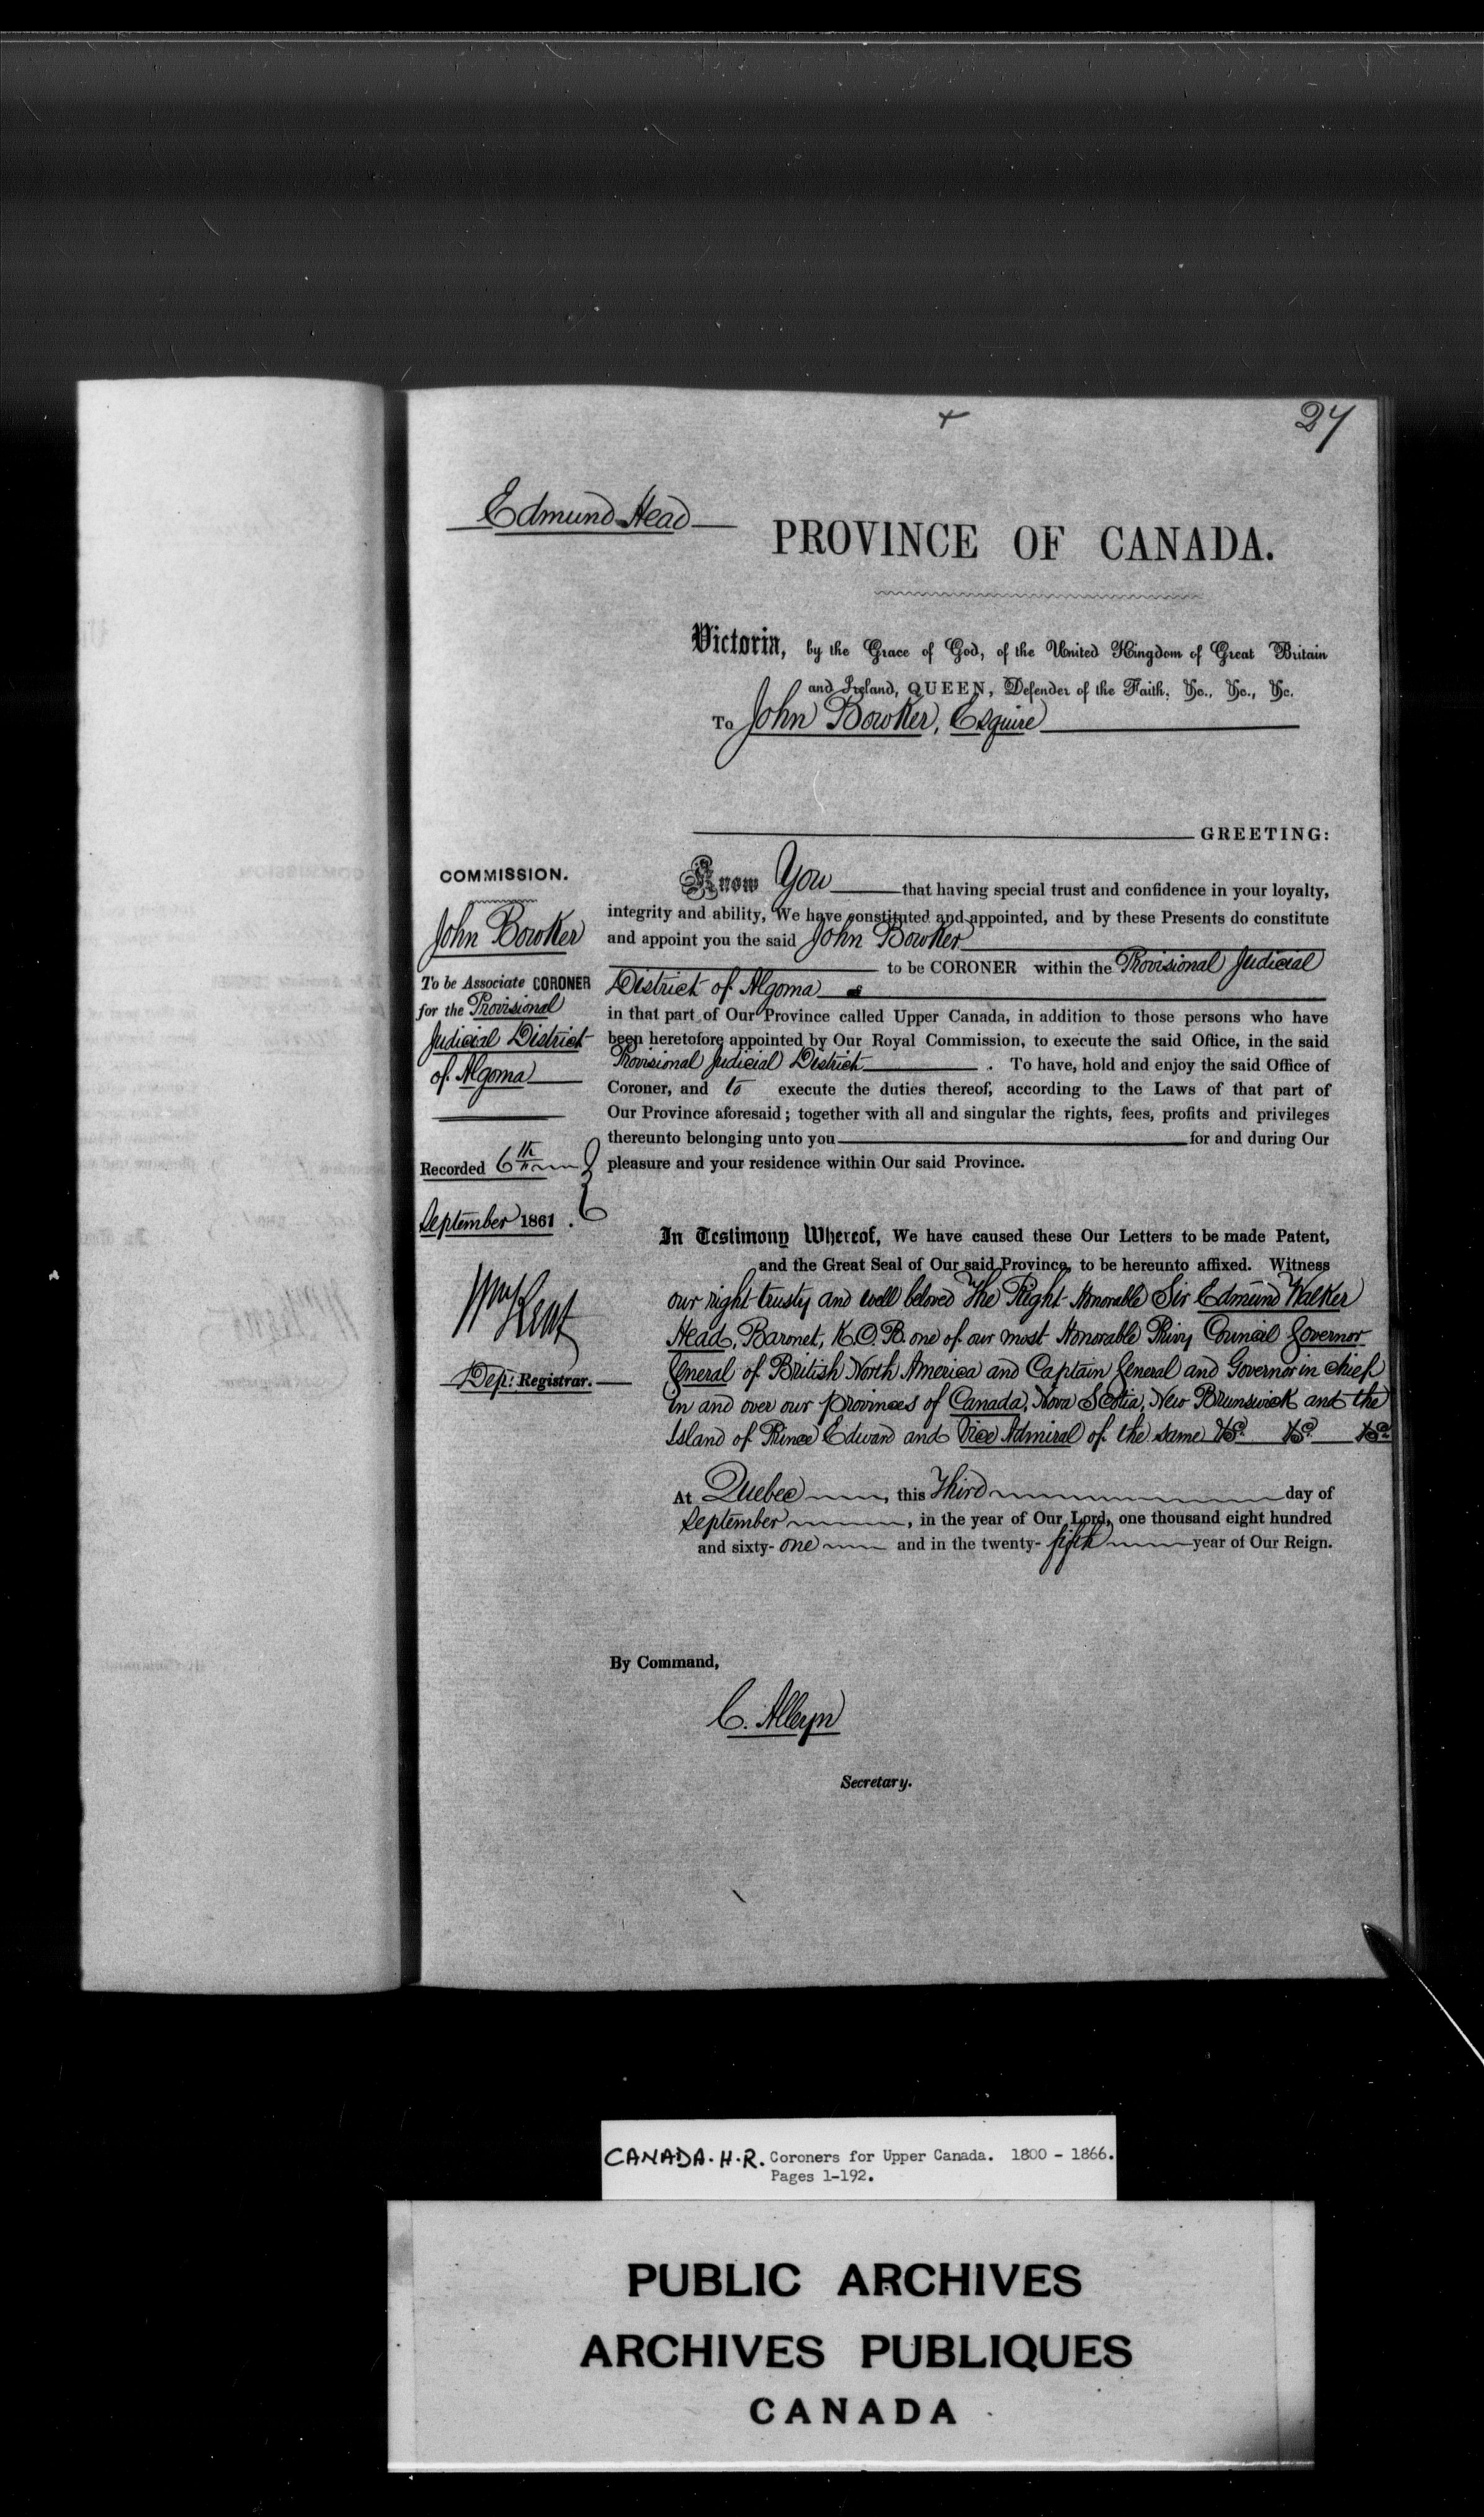 27
Edmund Head
PROVINCE OF CANADA.
Victoria, by the Grace of God, of the United Kingdom of Great Britain
and Ireland, QUEEN, Defender of the Faith, &c., &c., &c.
To John Bowker, Esquire
GREETING:
COMMISSION.
John Bowker
To be Associate CORONER
for the Provisional
Judicial District
of Algoma
Recorded 6th
September 1861.
Wm Kent
Dep: Registrar.
Know You that having special trust and confidence in your loyalty,
integrity and ability, We have constituted and appointed, and by these Presents do constitute
and appoint you the said John Bowker
to be CORONER within the Provisional Judicial
District of Algoma
in that part of Our Province called Upper Canada, in addition to those persons who have
been heretofore appointed by Our Royal Commission, to execute the said Office, in the said
Provisional Judicial District. To have, hold and enjoy the said Office of
Coroner, and to execute the duties thereof, according to the Laws of that part of
Our Province aforesaid; together with all and singular the rights, fees, profits and privileges
thereunto belonging unto you for and during Our
pleasure and your residence within Our said Province.
In Testimony Whereof, We have caused these Our Letters to be made Patent,
and the Great Seal of Our said Province, to be hereunto affixed. Witness
our right trusty and well beloved The Right Honorable Sir Edmund Walker
Head, Baronet, K.C.B. one of our most Honorable Privy Council Governor
General of British North America and Captain General and Governor in chief
in and over our provinces of Canada, Nova Scotia, New Brunswick and the
Island of Prince Edward and Vice Admiral of the same &c. &c. &c.
At Quebec, this Third day of
September, in the year of Our Lord, one thousand eight hundred
and sixty-one and in the twenty-fifth year of Our Reign.
By Command,
C. Alleyn
Secretary.
CANADA.H.R. Coroners for Upper Canada. 1800 - 1866.
Pages 1-192.
PUBLIC ARCHIVES
ARCHIVES PUBLIQUES
CANADA